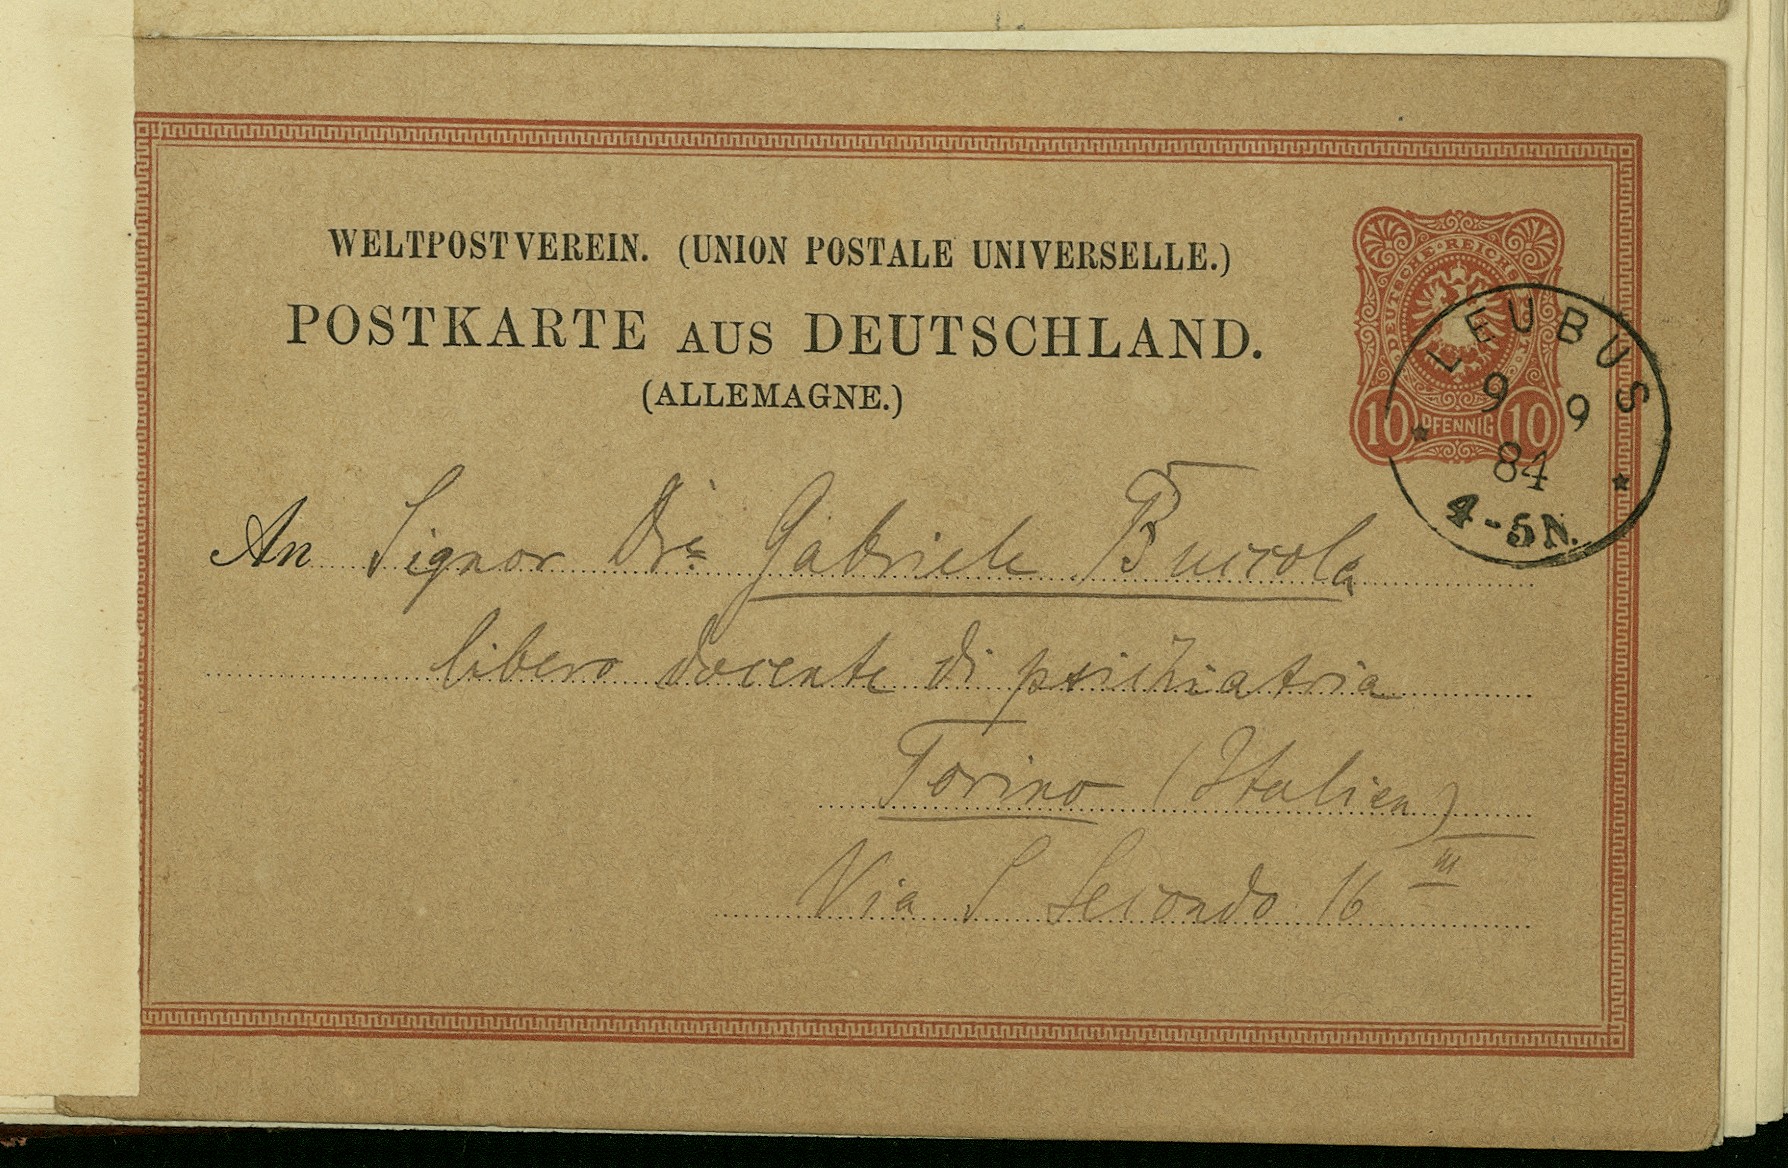 WELTPOSTVEREIN. (UNION POSTALE UNIVERSELLE.)
POSTKARTE AUS DEUTSCHLAND.
(ALLEMAGNE.)
DEUTSCHE REICHSPOST
10 PFENNIG 10
LEUBUS
9 9
84
4-5N.
An Signor Dre Gabriele Buccola
libero docente di psichiatria
Torino (Italien)
Via S Secondo 16 III